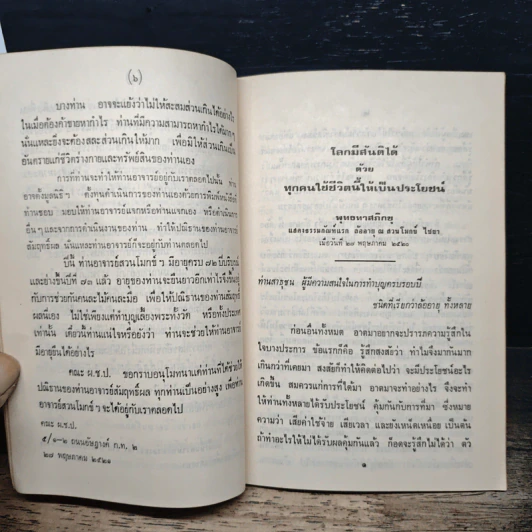 (๖)
บางท่าน อาจจะแย้งว่าไม่ให้สะสมส่วนเกินได้อย่างไร
ในเมื่อต้องค้าขายหากำไร ท่านที่มีความสามารถหากำไรได้มาก ๆ
นั่นแหละยิ่งจะต้องสละส่วนเกินให้มาก เพื่อมิให้ส่วนเกินเป็น
อันตรายแก่ชีวิตร่างกายและทรัพย์สินของท่านเอง
การที่ท่านจะทำให้ท่านอาจารย์อยู่กับเราตลอดไปนั้น ท่าน
อาจตั้งมูลนิธิ ฯ ตั้งทุนดำเนินการของท่านเองด้วยการพิมพ์หนังสือที่
ท่านชอบ มอบให้ท่านอาจารย์แจกหรือท่านแจกเอง หรือดำเนินการ
อื่น ๆ และจากการดำเนินงานของท่าน ทำให้ปณิธานของท่านอาจารย์
สัมฤทธิ์ผล นั่นแหละท่านอาจารย์ก็จะอยู่กับท่านตลอดไป
ปีนี้ ท่านอาจารย์สวนโมกข์ ฯ มีอายุครบ ๗๒ ปีบริบูรณ์
และย่างขึ้นปีที่ ๗๓ แล้ว อายุของท่านจะยืนยาวอีกเท่าไรจึงขึ้นอยู่
กับการช่วยกันคนละไม้คนละมือ เพื่อให้ปณิธานของท่านสัมฤทธิ์
ผลนั่นเอง ไม่ใช่เพียงแต่ทำบุญเลี้ยงพระทั้งวัด หรือทั้งประเทศ
เท่านั้น เดี๋ยวนี้ท่านแน่ใจหรือยังว่า ท่านจะช่วยให้ท่านอาจารย์
มีอายุยืนได้อย่างไร
คณะ ผ.ช.ป. ขอกราบอนุโมทนาแด่ท่านที่ได้ช่วยให้
ปณิธานของท่านอาจารย์สัมฤทธิ์ผล ทุกท่านเป็นอย่างสูง เพื่อท่าน
อาจารย์สวนโมกข์ ฯ จะได้อยู่กับเราตลอดไป
คณะ ผ.ช.ป.
๕/๑-๒ ถนนอัษฎางค์ ก.ท. ๒
๒๗ พฤษภาคม ๒๕๒๑
โลกมีสันติได้
ด้วย
ทุกคนใช้ชีวิตนี้ให้เป็นประโยชน์
พุทธทาสภิกขุ
แสดงธรรมกัณฑ์แรก ล้ออายุ ณ สวนโมกข์ ไชยา
เมื่อวันที่ ๒๗ พฤษภาคม ๒๕๒๐
ท่านสาธุชน ผู้มีความสนใจในการทำบุญครบรอบปี
ชนิดที่เรียกว่าล้ออายุ ทั้งหลาย
ก่อนอื่นทั้งหมด อาตมาอยากจะปรารภความรู้สึกใน
ใจบางประการ ข้อแรกก็คือ รู้สึกสงสัยว่า ทำไมจึงมากันมาก
เกินกว่าที่เคยมา สงสัยก็ทำให้คิดต่อไปว่า จะมีประโยชน์อะไร
เกิดขึ้น สมควรแก่การที่ได้มา อาตมาจะทำอย่างไร จึงจะทำ
ให้ท่านทั้งหลายได้รับประโยชน์ คุ้มกันกับการที่มา ซึ่งหมาย
ความว่า เสียค่าใช้จ่าย เสียเวลา และยังเหน็ดเหนื่อย เป็นต้น
ถ้าทำอะไรให้ไม่ได้รับผลคุ้มกันแล้ว ก็อดจะรู้สึกไม่ได้ว่า ตัว
๑